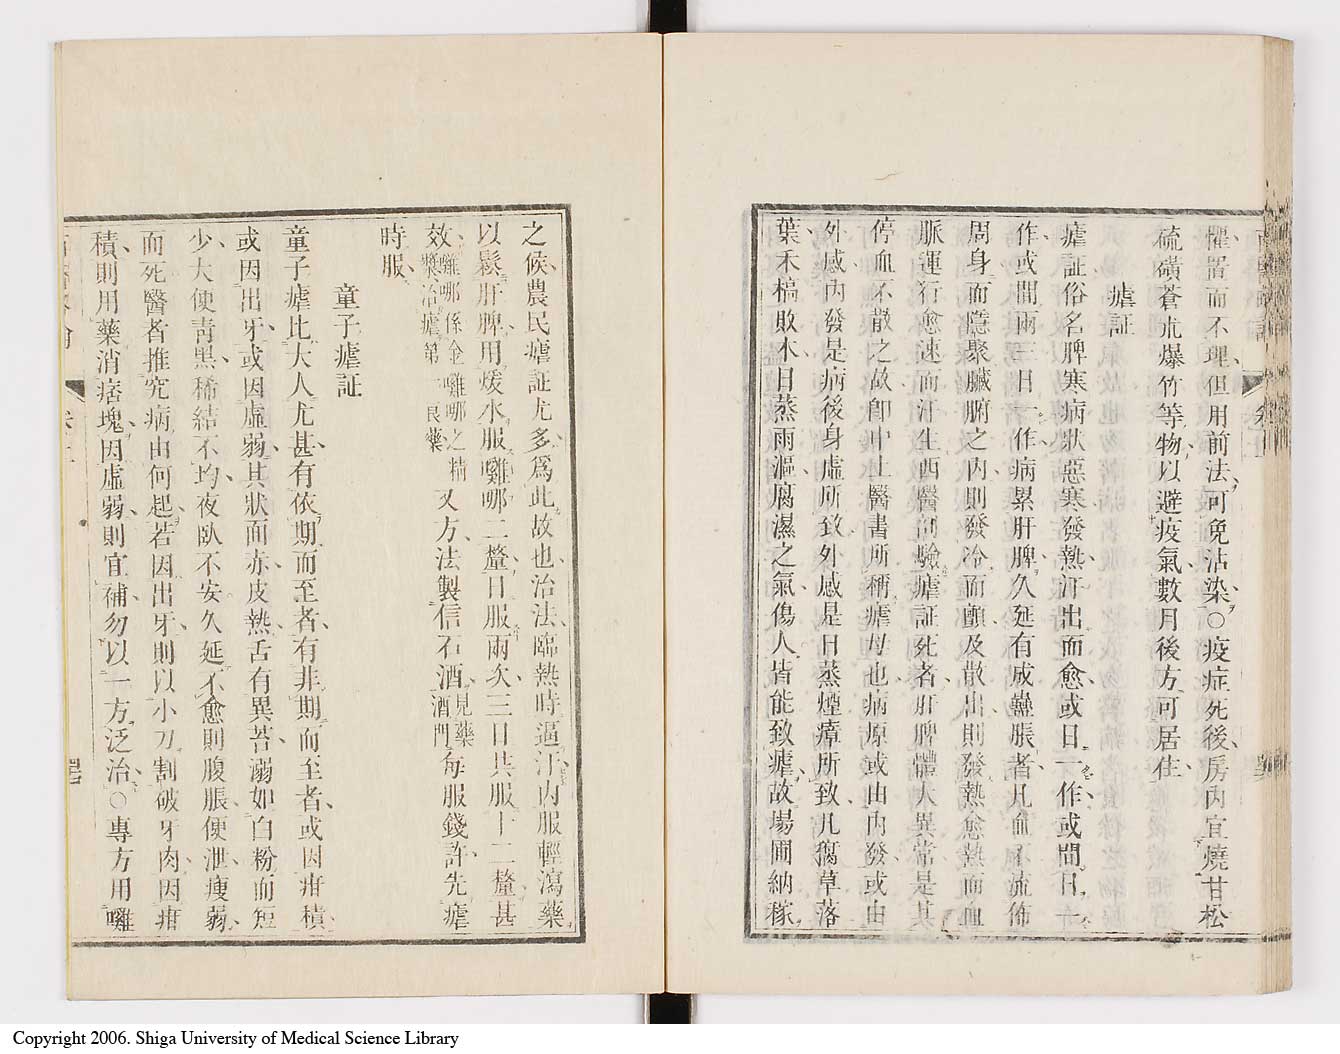 懼置而不理但用前法可免沾染〇疫症死後房內宜燒甘松
硫磺蒼朮爆竹等物以避疫氣數月後方可居住
瘧証
瘧証俗名脾寒病狀惡寒發熱汗出而愈或日一作或間日一
作或間兩三日一作病累肝脾久延有成蠱脹者凡血不流佈
周身而隱聚臟腑之內則發冷而顫及散出則發熱愈熱而血
脈運行愈速而汗生西醫剖驗瘧証死者肝脾體大異常是其
停血不散之故卽中土醫書所稱瘧母也病原或由內發或由
外感內發是病後身虛所致外感是日蒸煙瘴所致凡腐草落
葉禾槁敗木日蒸雨漚腐濕之氣傷人皆能致瘧故場圃納稼
之候農民瘧証尤多爲此故也治法臨熱時逼汗內服輕瀉藥
以鬆肝脾用煖水服雞哪二釐日服兩次三日共服十二釐甚
效雞哪係金雞哪之精藥治瘧第一良藥又方法製信石酒見藥酒門每服錢許先瘧
時服
童子瘧証
童子瘧比大人尤甚有依期而至者有非期而至者或因疳積
或因出牙或因虛弱其狀面赤皮熱舌有異苔溺如白粉而短
少大便靑黑稀結不均夜臥不安久延不愈則腹脹便泄瘦弱
而死醫者推究病由何起若因出牙則以小刀割破牙肉因疳
積則用藥消痞塊因虛弱則宜補勿以一方泛治〇專方用囄